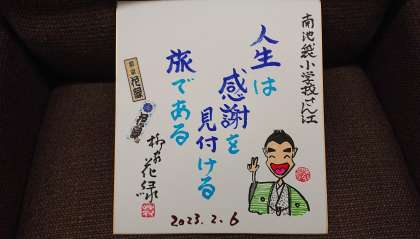 南池袋小学校さん江
人生は
感謝を
見付ける
旅である
柳家花緑
2023.2.6